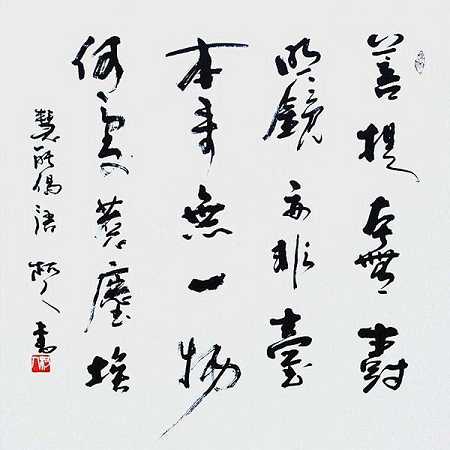 菩提本無樹
明鏡亦非臺
本來無一物
何處惹塵埃
慧能偈語 人書